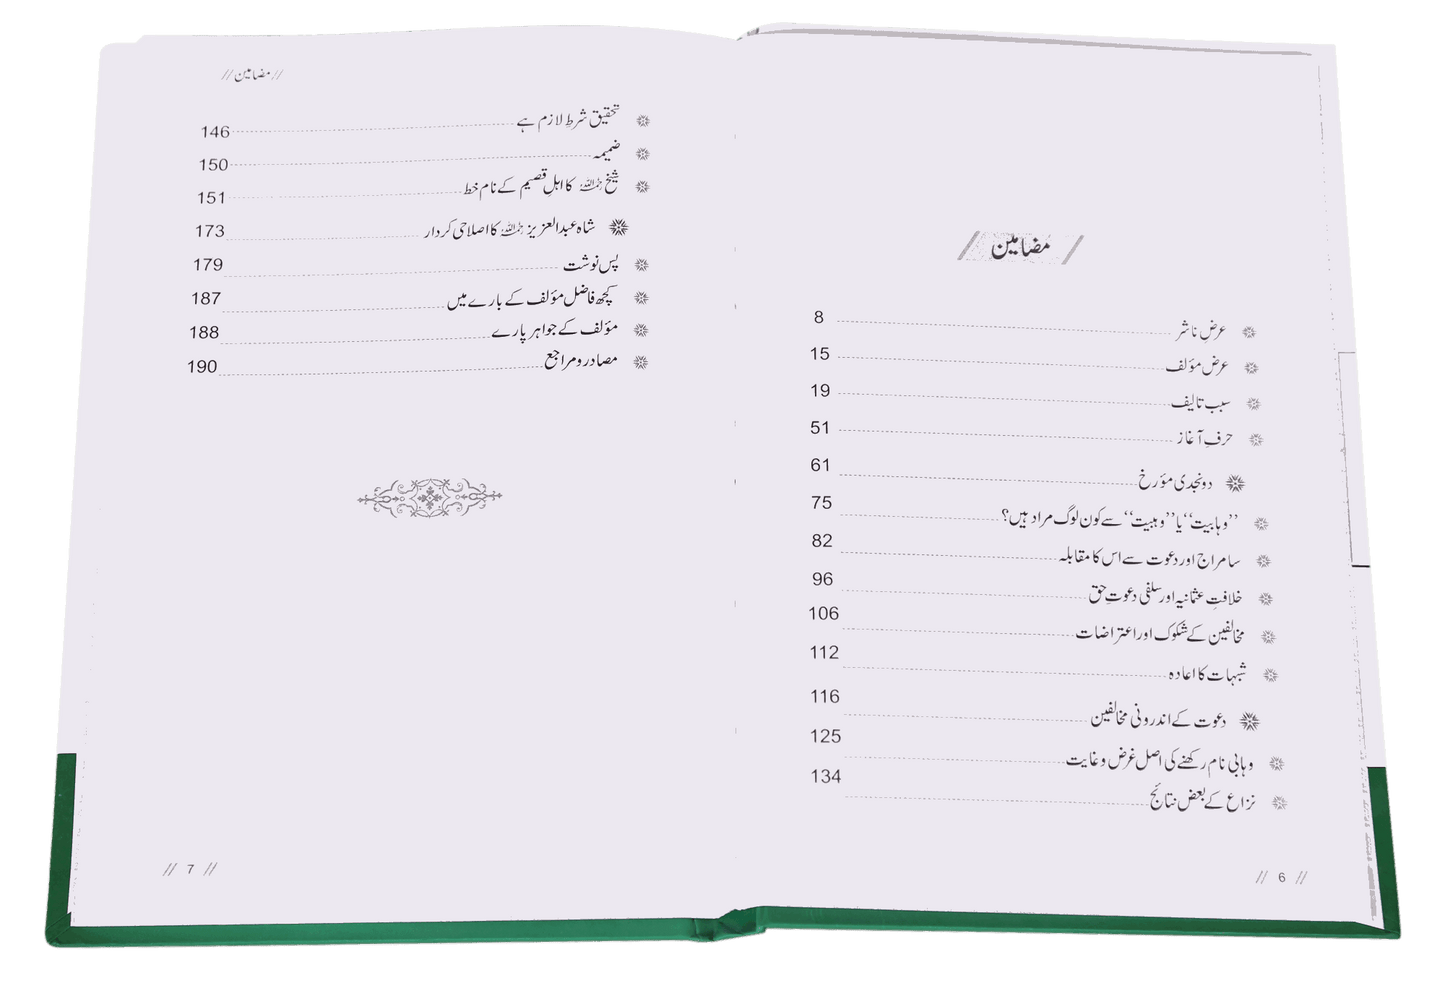 مضامین
عرضِ ناشر 8
عرض مؤلف 15
سبب تالیف 19
حرفِ آغاز 51
دو نجدی مؤرخ 61
’’وہابیت‘‘ یا ’’وہبیت‘‘ سے کون لوگ مراد ہیں؟ 75
سامراج اور دعوت سے اس کا مقابلہ 82
خلافتِ عثمانیہ اور سلفی دعوتِ حق 96
مخالفین کے شکوک اور اعتراضات 106
شبہات کا اعادہ 112
دعوت کے اندرونی مخالفین 116
وہابی نام رکھنے کی اصل غرض و غایت 125
نزاع کے بعض نتائج 134
// 6 //
// مضامین //
تحقیق شرطِ لازم ہے 146
ضمیمہ 150
شیخ رحمہ اللہ کا اہلِ قصیم کے نام خط 151
شاہ عبدالعزیز رحمہ اللہ کا اصلاحی کردار 173
پس نوشت 179
کچھ فاضل مؤلف کے بارے میں 187
مؤلف کے جواہر پارے 188
مصادر و مراجع 190
// 7 //